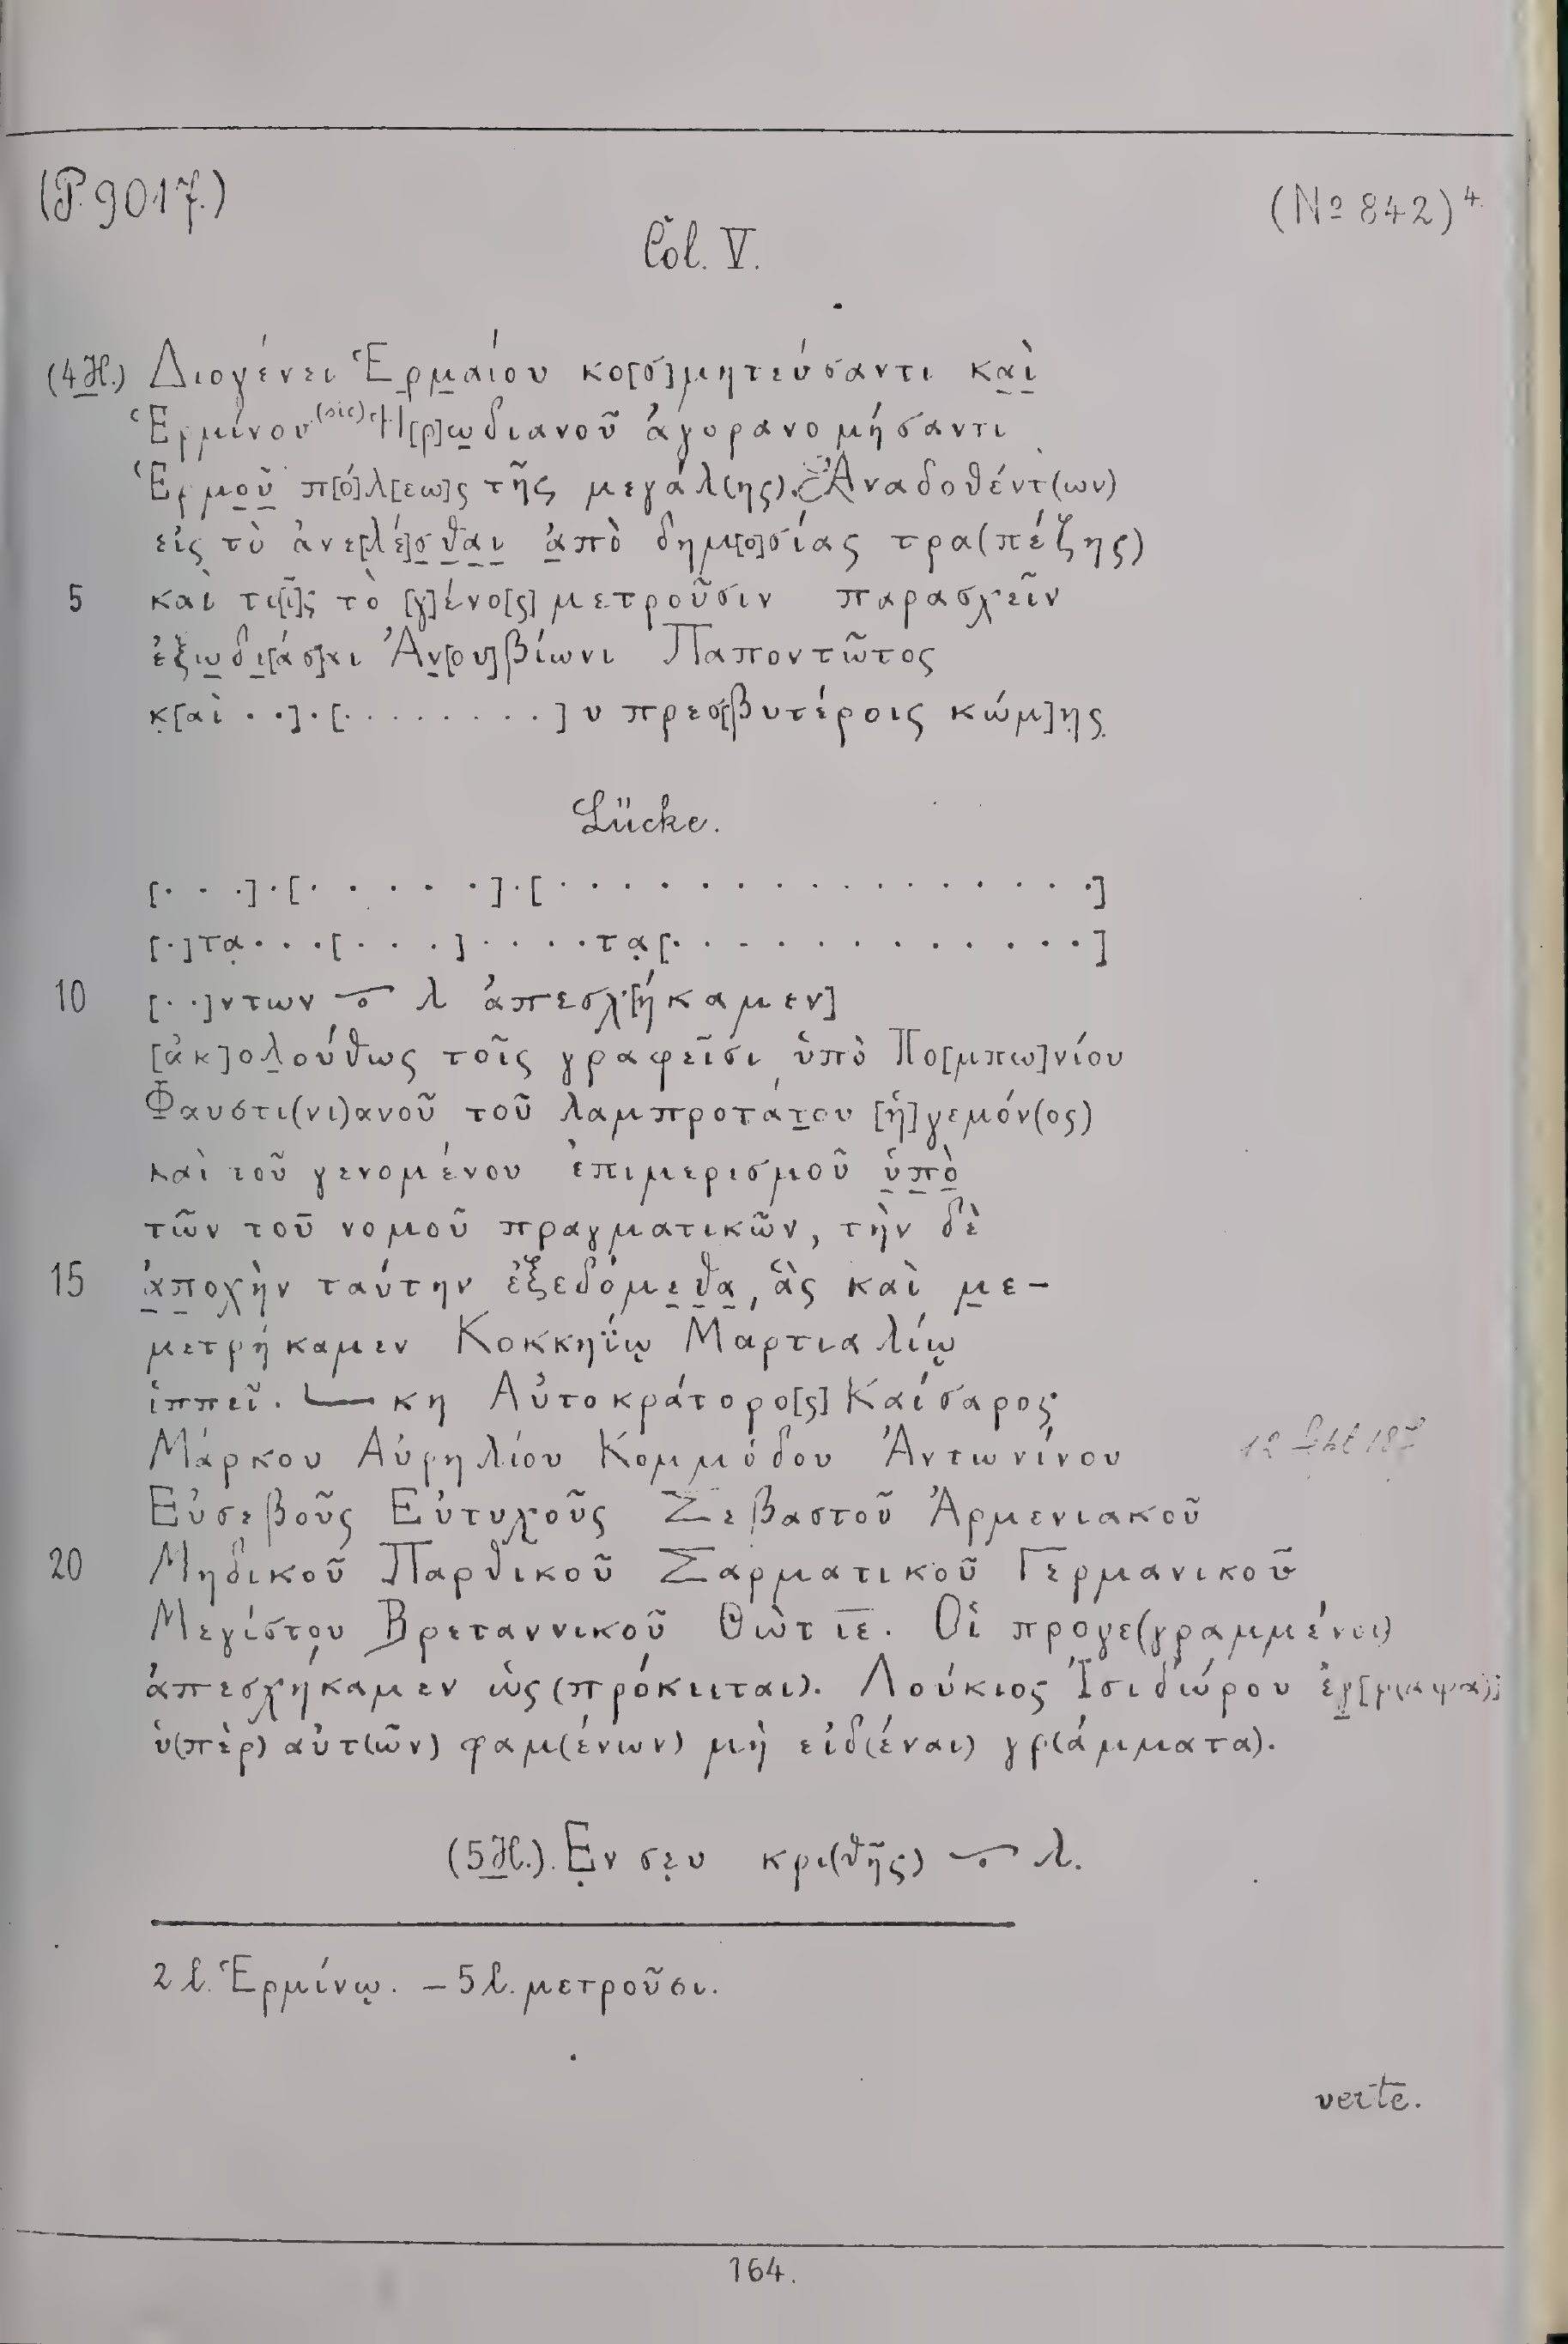 (P. 9017.)
(No 842) 4.
Col. V.
(4 H.) Διογένει Ἑρ̣μ̣αίου κο[σ]μητεύσαντι κα̣ὶ̣
Ἑρμίνου (sic) Ἡ[ρ]ω̣διανοῦ ἀγορανομήσαντι
Ἑρμο̣ῦ̣ π[ό]λ[εω]ς τῆς μεγάλ(ης). Ἀναδοθέντ(ων)
εἰς τὸ ἀνε[λέ]σ̣θ̣α̣ι̣ ἀ̣πὸ δημ[ο]σίας τρα(πέζης)
5 καὶ τι[ῖ]ς τὸ [γ]ένο[ς] μετροῦσιν παρασχεῖν
ἐξω̣δι̣[άσ]αι Ἀν̣[ου]βίωνι Παποντῶτος
κ̣[αὶ · ·] · [· · · · · · · ·] υ πρεσ[βυτέροις κώμ]η̣ς̣
Lücke.
[· · ·] · [· · · · · ·] · [· · · · · · · · · · · · · · · ·]
[·]τα̣ · · · [· · · ·] · · · · τα̣[· · · · · · · · · · · · ·]
10 [· ·]ντων 𐆎 λ ἀπεσχ[ήκαμεν]
[ἀκ]ολ̣ούθως τοῖς γραφεῖσι ὑπὸ Πο[μπω]νίου
Φαυστι(νι)ανοῦ τοῦ λαμπροτάτ̣ου [ἡ]γεμόν(ος)
καὶ τοῦ γενομένου ἐπιμερισμοῦ ὑ̣π̣ὸ̣
τῶν τοῦ νομοῦ πραγματικῶν, τὴν δὲ
15 ἀ̣π̣οχὴν ταύτην ἐξεδόμε̣θ̣α̣, ἃς καὶ μ̣ε-
μετρήκαμεν Κοκκηΐῳ Μαρτιαλίῳ
ἱππεῖ. 𐅹 κη Αὐτοκράτορο[ς] Καίσαρος
Μάρκου Αὐρηλίου Κομμόδου Ἀντωνίνου
12 Sept 187
Εὐσεβοῦς Εὐτυχοῦς Σεβαστοῦ Ἀρμενιακοῦ
20 Μηδικοῦ Παρθικοῦ Σαρματικοῦ Γερμανικοῦ
Μεγίστου Βρεταννικοῦ Θὼτ ι̅ε̅. Οἱ προγε(γραμμένοι)
ἀπεσχήκαμεν ὡς (πρόκιται). Λούκιος Ἰσιδώρου ἐγ̣[ρ(αψα)]
ὑ(πὲρ) αὐτ(ῶν) φαμ(ένων) μὴ εἰδ(έναι) γρ(άμματα).
(5 H.). Ε̣ν σε̣υ κρι(θῆς) 𐆎 λ.
2 l. Ἑρμίνῳ. – 5 l. μετροῦσι.
verte.
164.